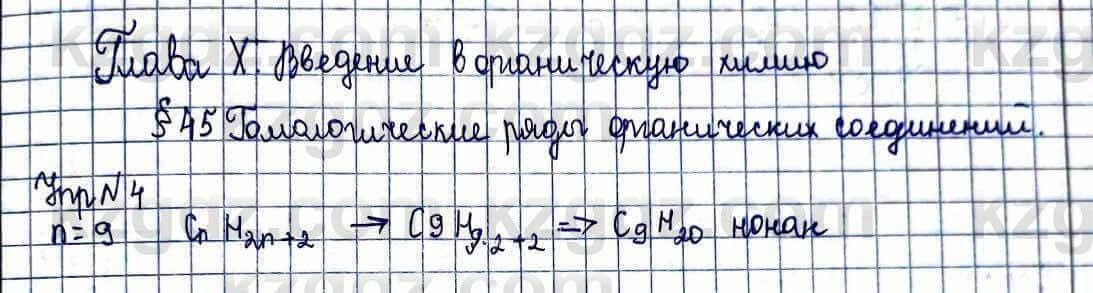 Глава X. Введение в органическую химию
§ 45 Гомологические ряды органических соединений.
Упр N 4
n = 9 CnH2n+2 → C9H9·2+2 => C9H20 нонан